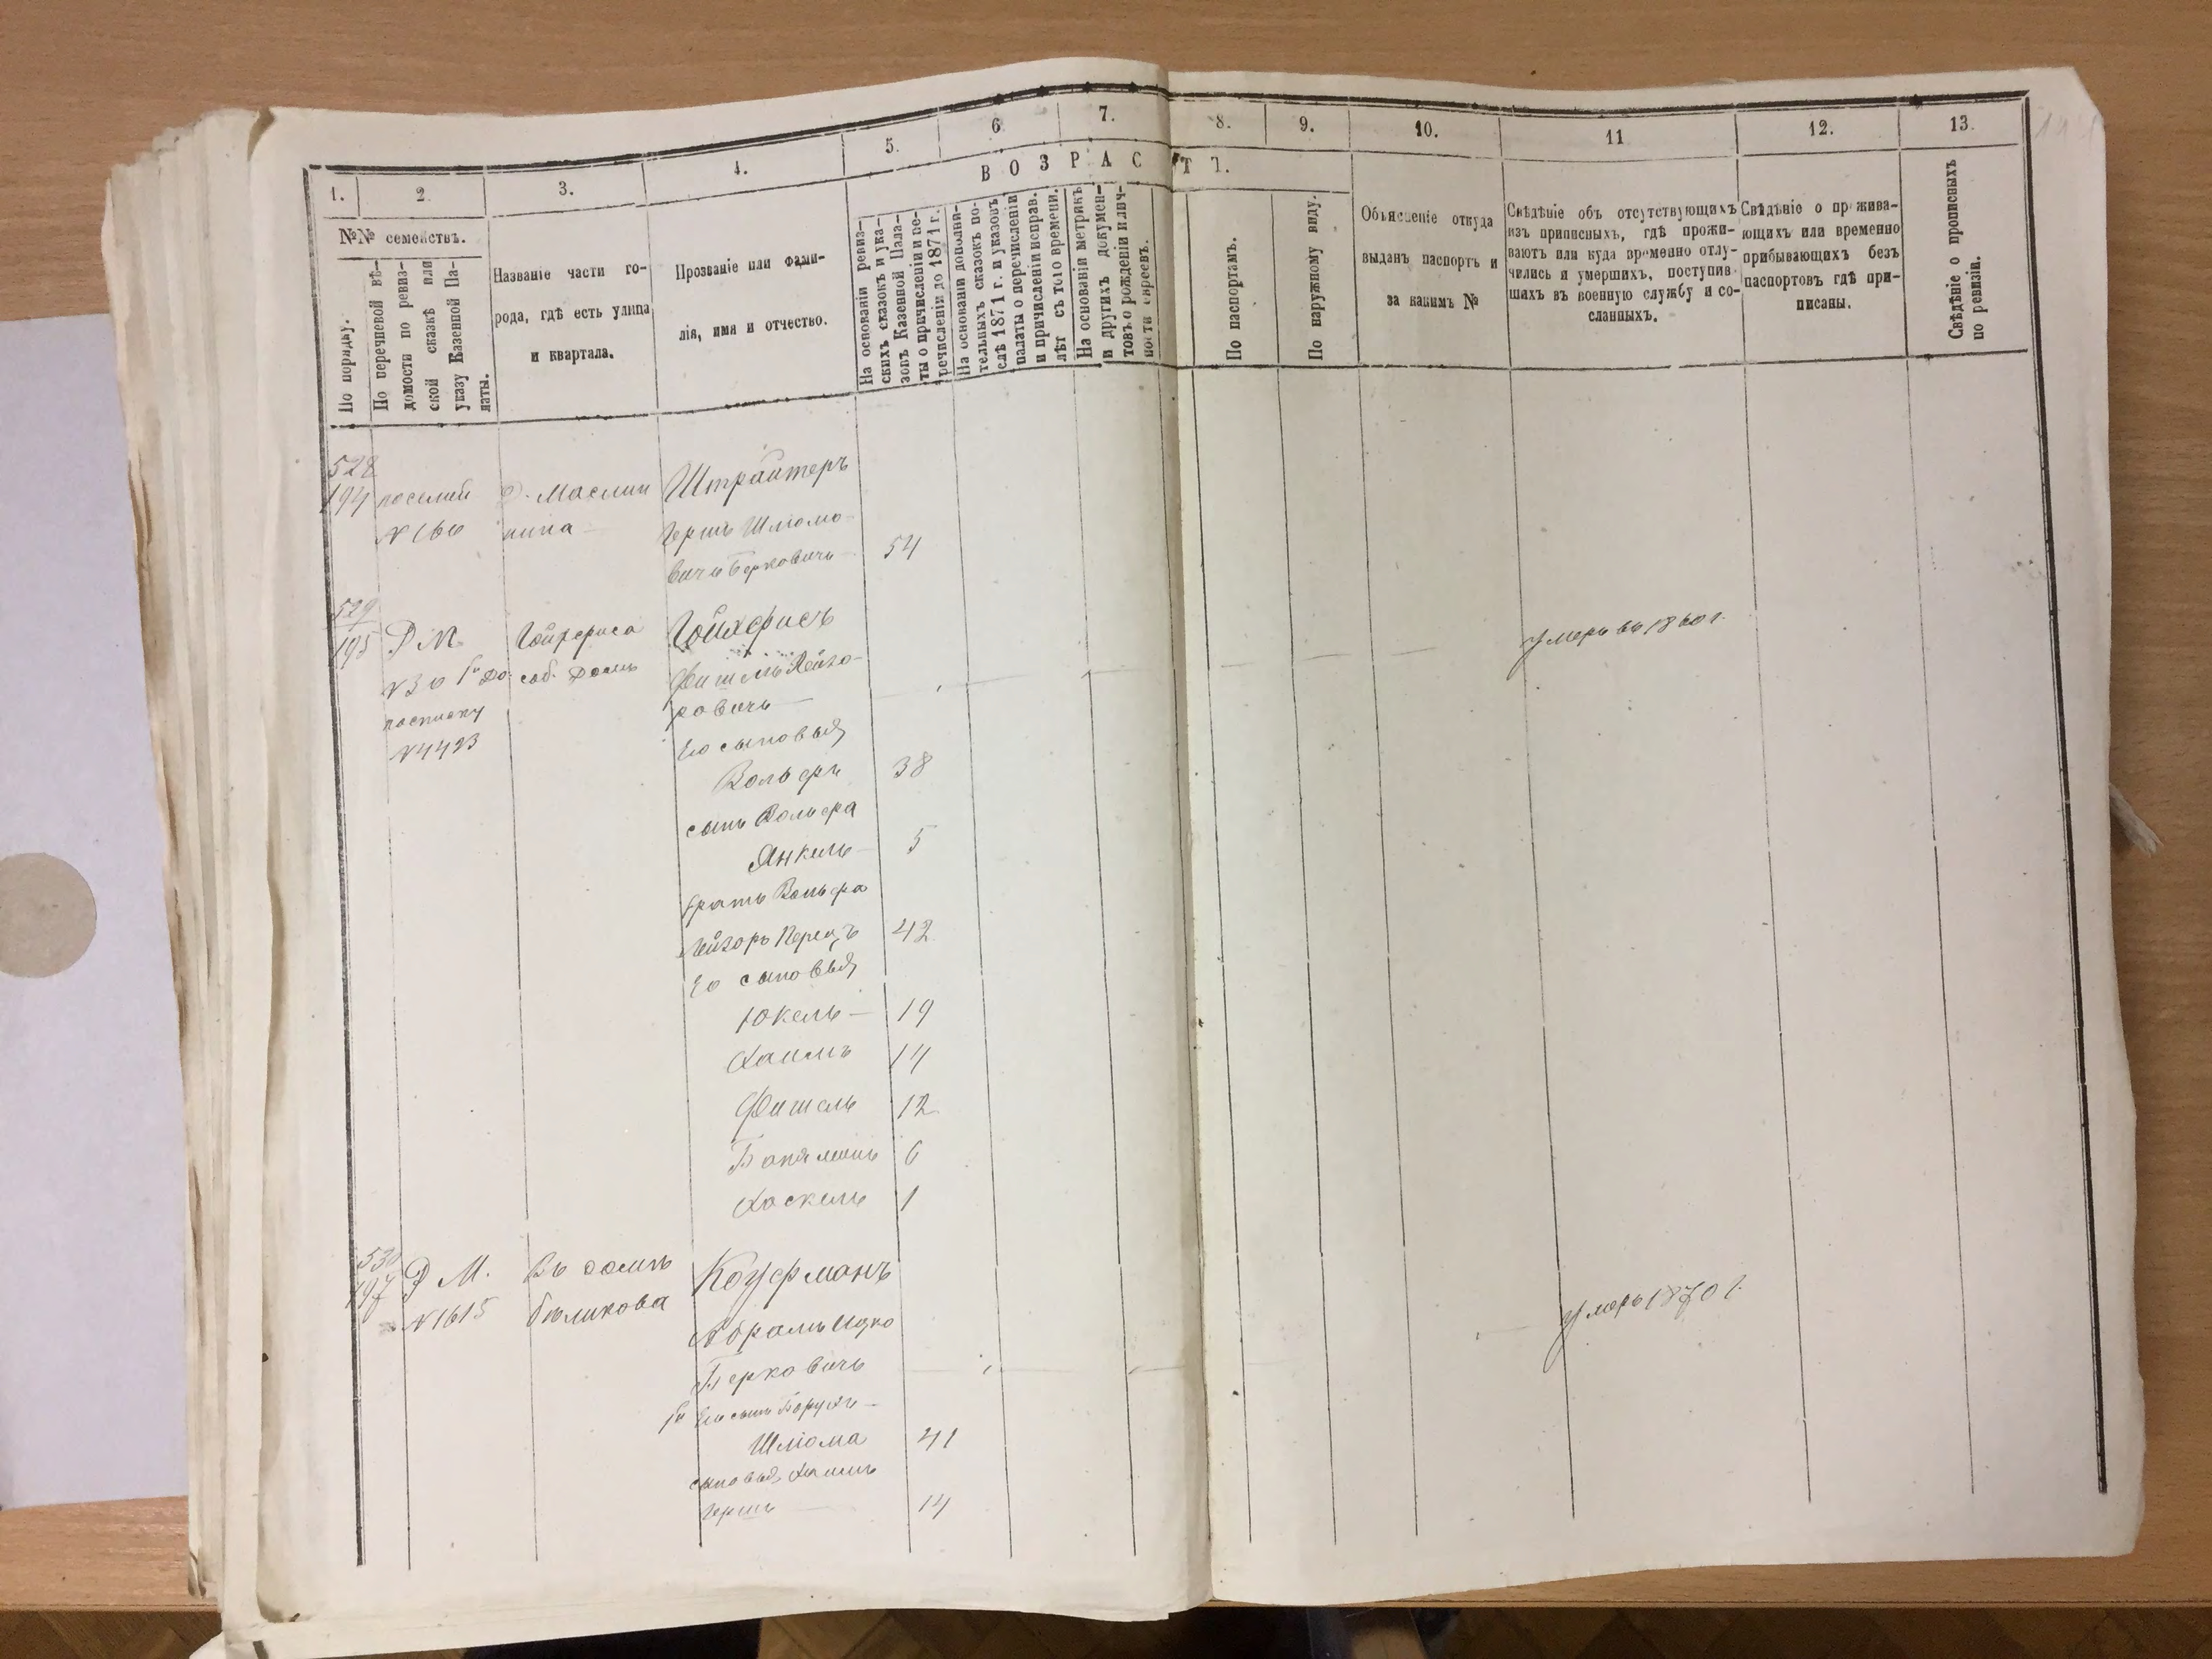 1.
2.
3.
4.
5.
6.
7.
8.
9.
10.
11
12.
13.
ВОЗРАСТЪ.
№№ семействъ.
По порядку.
По перечневой вѣ-
домости по ревиз-
ской сказкѣ или
указу Казенной Па-
латы.
Названіе части го-
рода, гдѣ есть улица
и квартала.
Прозваніе или фами-
лія, имя и отчество.
На основаніи ревиз-
скихъ сказокъ и ука-
зовъ Казенной Пала-
ты о причисленіи и пе-
речисленіи до 1871 г.
На основаніи дополни-
тельныхъ сказокъ по-
слѣ 1871 г. и указовъ
палаты о перечисленіи
и причисленіи исправ.
лѣт съ того времени.
На основаніи метрикъ
и другихъ докумен-
товъ о рожденіи и лич-
ности евреевъ.
По паспортамъ.
По наружному виду.
Объясненіе откуда
выданъ паспортъ и
за какимъ №
Свѣдѣніе объ отсутствующихъ
изъ приписныхъ, гдѣ прожи-
ваютъ или куда временно отлу-
чились и умершихъ, поступив-
шихъ въ военную службу и со-
сланныхъ.
Свѣдѣніе о прожива-
ющихъ или временно
прибывающихъ безъ
паспортовъ гдѣ при-
писаны.
Свѣдѣніе о прописныхъ
по ревизіи.
528
194
№ 166
Штрайтеръ
Гершъ Шліомо-
вичъ Берковичъ 54
529
195 Р М. Гойхфиса Гойхфисъ
соб. домъ Фишель Лейзо-
ровичъ — умеръ въ 1860 г.
№ 4423
Его сыновья
Вольфъ 38
сынъ Вольфа
Янкель — 5
братъ Вольфа
Лейзоръ Перецъ 42
Его сыновья
Юкель — 19
Хаимъ 14
Фишель 12
Беніаминъ 6
Хаскель 1
530
197 Р М. Въ домѣ Коуфманъ
№ 1615 Бѣликова
Абрамъ Ицко
Берковичъ — умеръ 1870 г.
Его сынъ Борухъ —
Шліома 41
сыновья, Хаимъ
Гершъ — 14